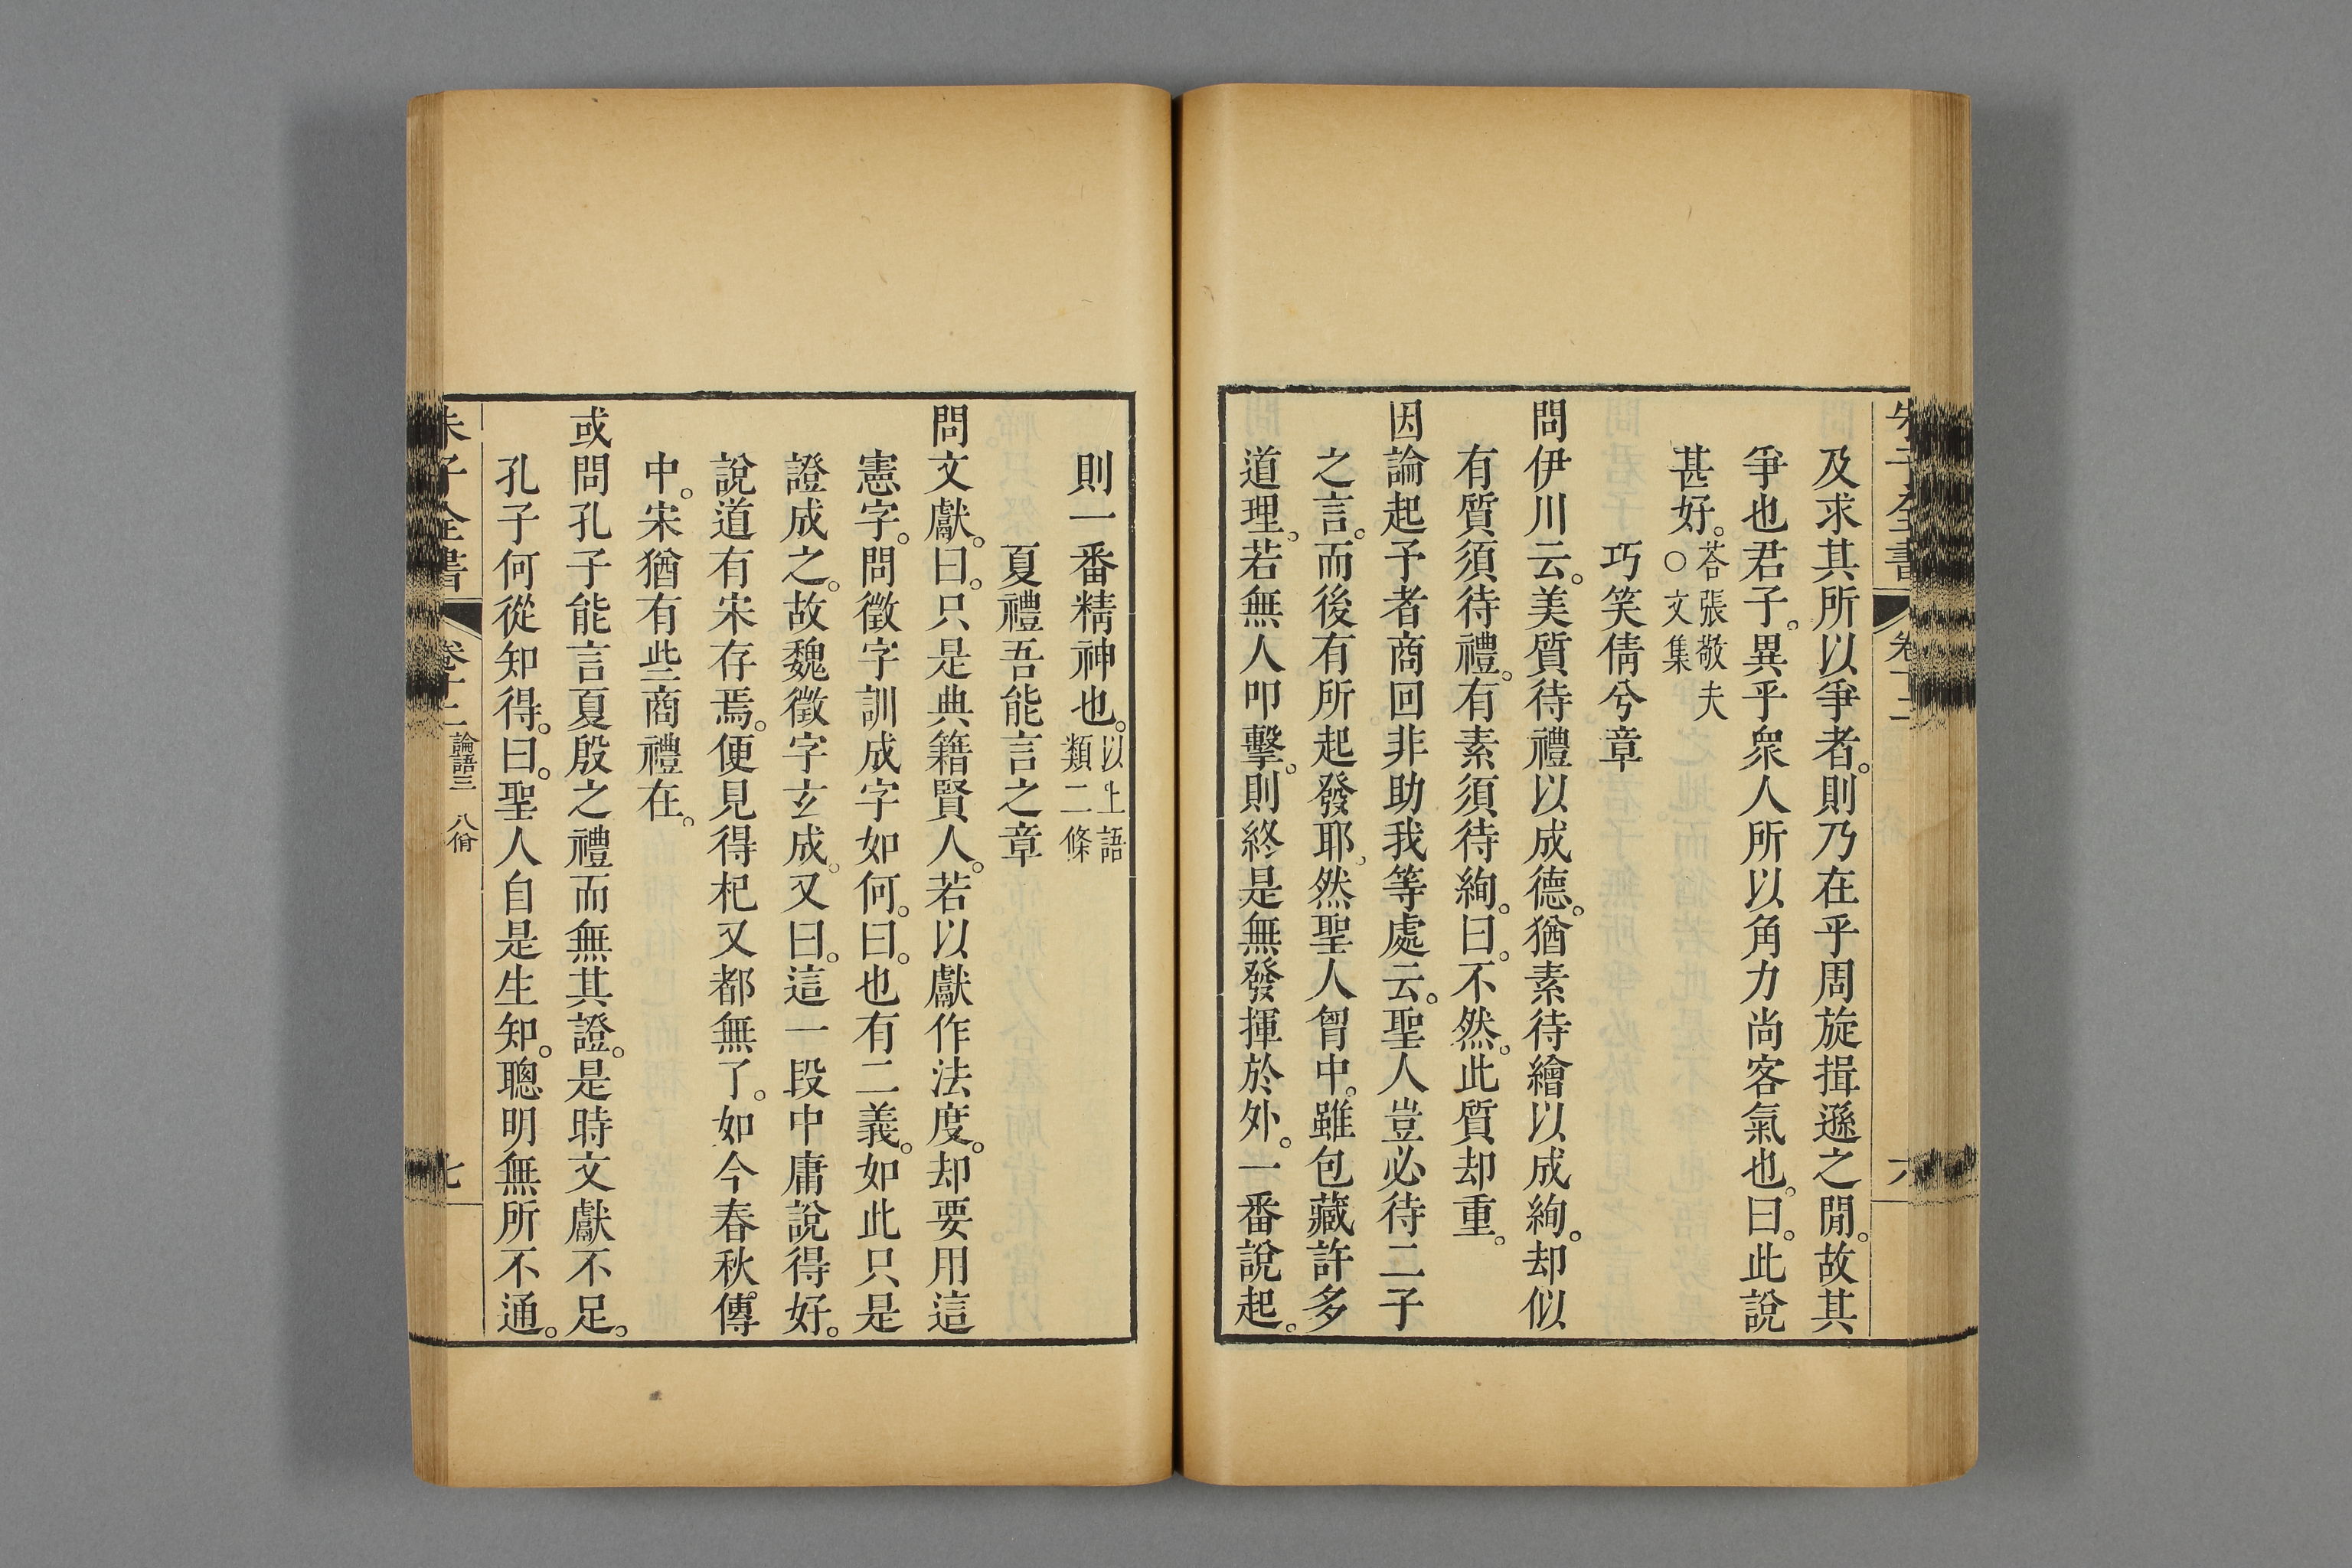 及求其所以爭者。則乃在乎周旋揖遜之閒。故其
爭也君子。異乎衆人所以角力尚客氣也。曰。此說
甚好。荅張敬夫○文集
巧笑倩兮章
問伊川云。美質待禮以成德。猶素待繪以成絢。却似
有質須待禮。有素須待絢。曰。不然。此質却重。
因論起予者商回非助我等處云。聖人豈必待二子
之言。而後有所起發耶。然聖人胷中。雖包藏許多
道理。若無人叩擊。則終是無發揮於外。一番說起。
則一番精神也。以上語類二條
夏禮吾能言之章
問文獻。曰。只是典籍賢人。若以獻作法度。却要用這
憲字。問徵字訓成字如何。曰。也有二義。如此只是
證成之。故魏徵字玄成。又曰。這一段中庸說得好。
說道有宋存焉。便見得杞又都無了。如今春秋。傳
中。宋猶有些商禮在。
或問孔子能言夏殷之禮而無其證。是時文獻不足。
孔子何從知得。曰。聖人自是生知。聰明無所不通。
朱子全書 卷十二 論語三 八佾 七